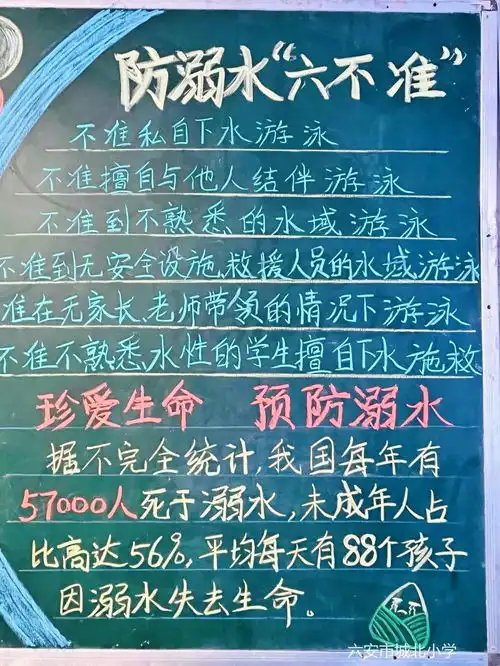 防溺水“六不准”
不准私自下水游泳
不准擅自与他人结伴游泳
不准到不熟悉的水域游泳
不准到无安全设施,救援人员的水域游泳
准在无家长、老师带领的情况下游泳
不准不熟悉水性的学生擅自下水施救
珍爱生命 预防溺水
据不完全统计,我国每年有
57000人死于溺水,未成年人占
比高达56%,平均每天有88个孩子
因溺水失去生命。
六安市城北小学